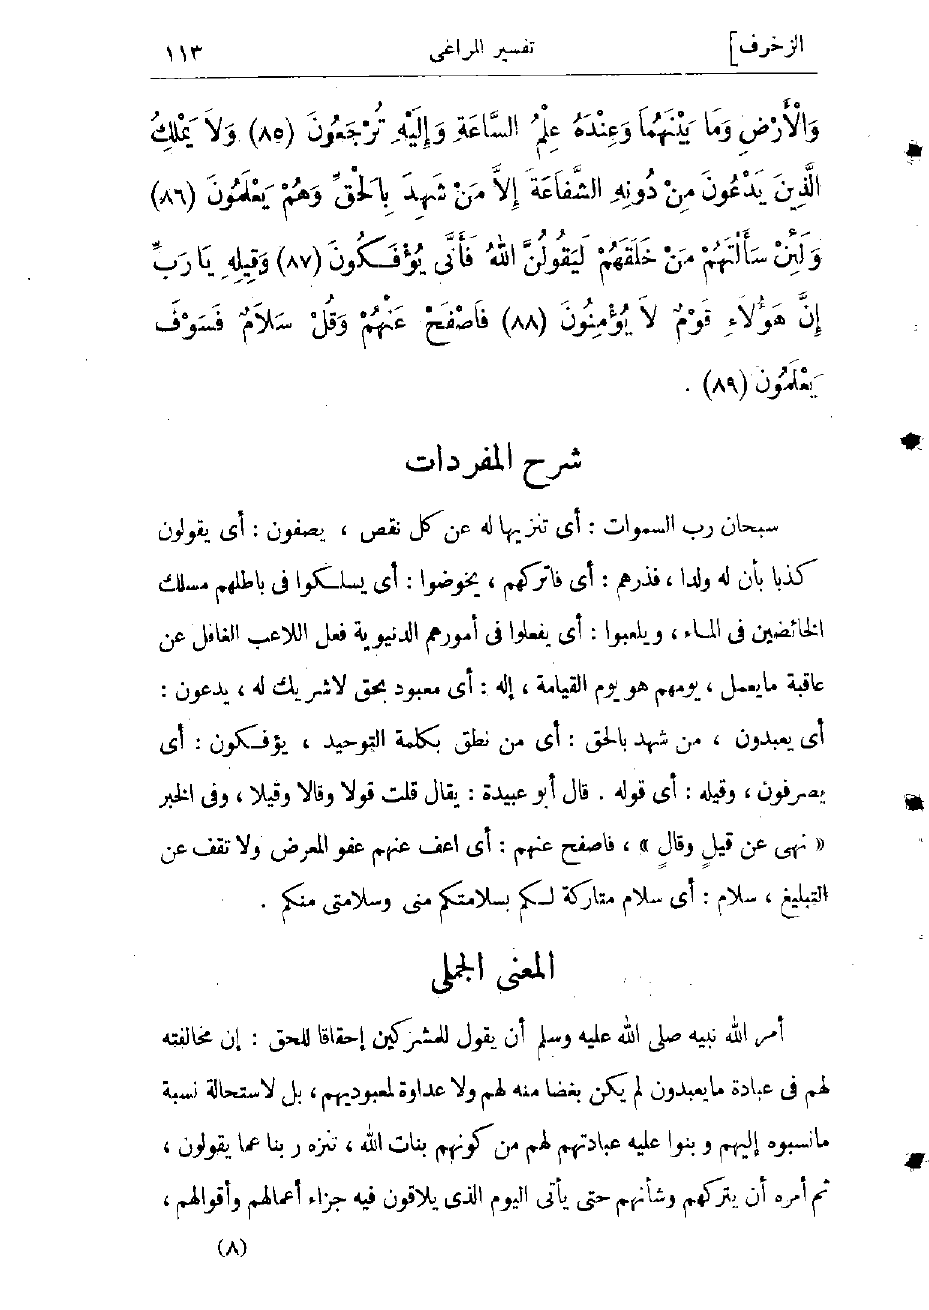 الزخرف]
تفسير المراغى
١١٣
وَالْأَرْضِ وَمَا بَيْنَهُمَا وَعِنْدَهُ عِلْمُ السَّاعَةِ وَإِلَيْهِ تُرْجَعُونَ (٨٥) وَلاَ يَمْلِكُ
الَّذِينَ يَدْعُونَ مِنْ دُونِهِ الشَّفَاعَةَ إِلاَّ مَنْ شَهِدَ بِالْحَقِّ وَهُمْ يَعْلَمُونَ (٨٦)
وَلَئِنْ سَأَلْتَهُمْ مَنْ خَلَقَهُمْ لَيَقُولُنَّ اللهُ فَأَنَّى يُؤْفَكُونَ (٨٧) وَقِيلِهِ يَا رَبِّ
إِنَّ هَؤُلاَءِ قَوْمٌ لاَ يُؤْمِنُونَ (٨٨) فَاصْفَحْ عَنْهُمْ وَقُلْ سَلاَمٌ فَسَوْفَ
يَعْلَمُونَ (٨٩) .
شرح المفردات
سبحان رب السموات : أى تنزيها له عن كل نقص ، يصفون : أى يقولون
كذبا بأن له ولدا ، فذرهم : أى فاتركهم ، يخوضوا : أى يسلكوا فى باطلهم مسلك
الخائضين فى الماء ، ويلعبوا : أى يفعلوا فى أمورهم الدنيوية فعل اللاعب الغافل عن
عاقبة مايعمل ، يومهم هو يوم القيامة ، إله : أى معبود بحق لاشريك له ، يدعون :
أى يعبدون ، من شهد بالحق : أى من نطق بكلمة التوحيد ، يؤفكون : أى
يصرفون ، وقيله : أى قوله . قال أبو عبيدة : يقال قلت قولا وقالا وقيلا ، وفى الخبر
« نهى عن قيلٍ وقالٍ » ، فاصفح عنهم : أى اعف عنهم عفو المعرض ولا تقف عن
التبليغ ، سلام : أى سلام متاركة لكم بسلامتكم منى وسلامتى منكم .
المعنى الجملى
أمر الله نبيه صلى الله عليه وسلم أن يقول للمشركين إحقاقا للحق : إن مخالفته
لهم فى عبادة مايعبدون لم يكن بغضا منه لهم ولا عداوة لمعبوديهم ، بل لاستحالة نسبة
مانسبوه إليهم وبنوا عليه عبادتهم لهم من كونهم بنات الله ، تنزه ربنا عما يقولون ،
ثم أمره أن يتركهم وشأنهم حتى يأتى اليوم الذى يلاقون فيه جزاء أعمالهم وأقوالهم ،
(٨)